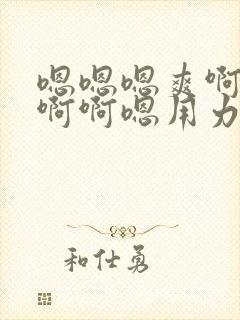 嗯嗯嗯爽啊
啊啊嗯用力
和仕勇